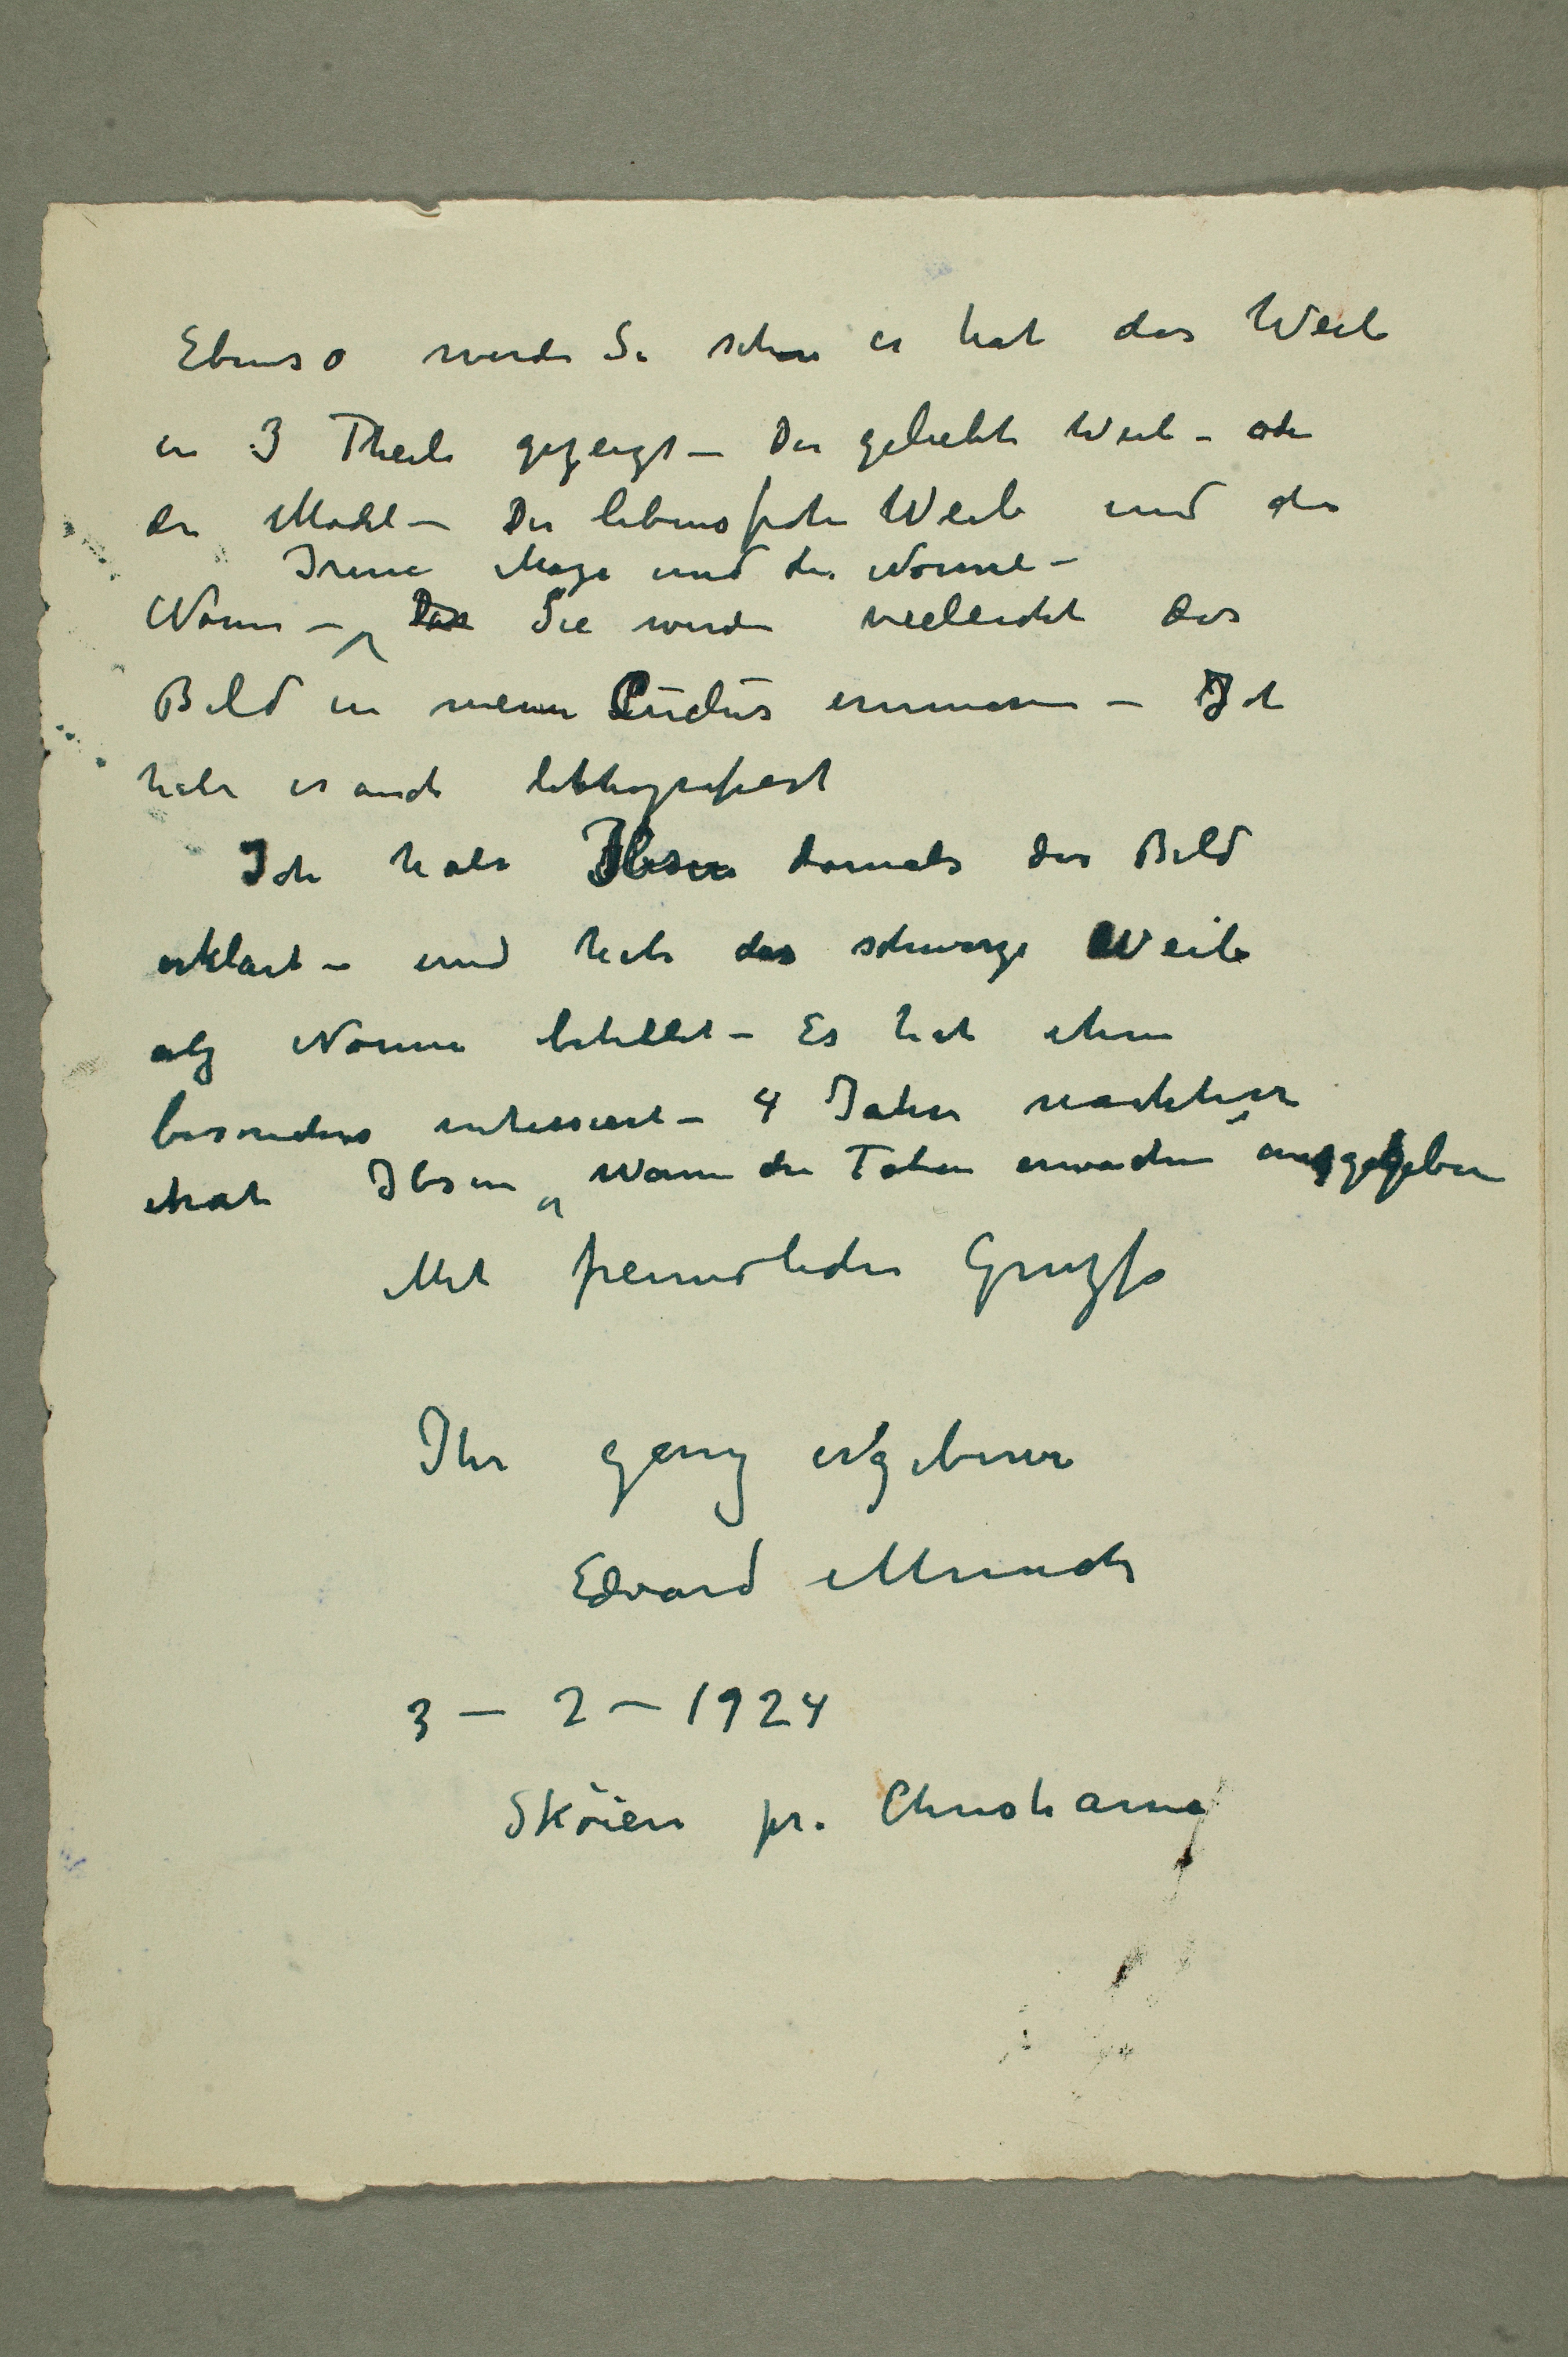 Ebenso werde Sie sehen er hat das Weib
in 3 Theile gezeigt – Das geliebte Weib – oder
der Model – Das lebensfrohe Weib und die
Irene Maja und die Nonne –
Nonne – Das Sie werden vielleicht das
Bild in meinem Cuclus erinnern – Ich
habe es auch litthografiert
Ich habe Ibsen damals das Bild
erklärt – und habe das schwarze Weib
alz Nonne betitlet – Es hat ihm
besonders interissiert – 4 Jahre nachher
hat Ibsen „Wann die Toten erwachen“ ausgegeben
Mit freundlichen Gruzse
Ihr ganz ergebener
Edvard Munch
3 – 2 – 1924
Sköien pr. Christiania